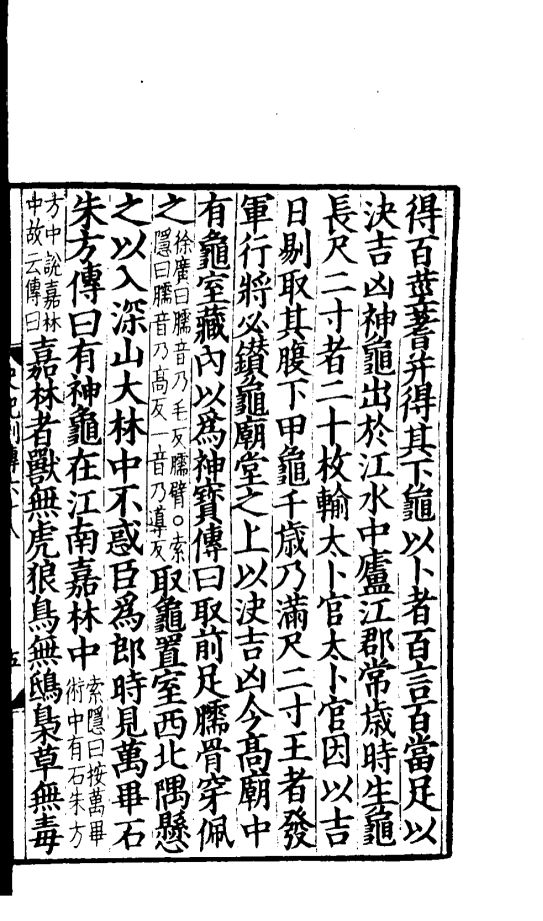 得百莖蓍并得其下龜以卜者百言百當足以
決吉凶神龜出於江水中廬江郡常歲時生龜
長尺二寸者二十枚輸太卜官太卜官因以吉
日剔取其腹下甲龜千歲乃滿尺二寸王者發
軍行將必鑽龜廟堂之上以決吉凶今高廟中
有龜室藏內以爲神寶傳曰取前足臑骨穿佩
之徐廣曰臑音乃毛反臑臂○索隱曰臑音乃高反一音乃導反取龜置室西北隅懸
之以入深山大林中不惑臣爲郎時見萬畢石
朱方傳曰有神龜在江南嘉林中索隱曰按萬畢術中有石朱方
方中說嘉林中故云傳曰嘉林者獸無虎狼鳥無鴟梟草無毒